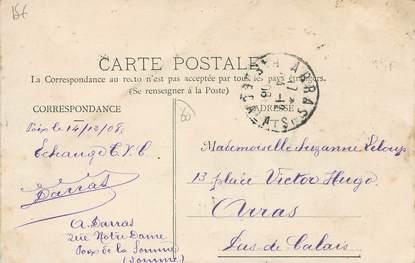 15€
CARTE POSTALE
La Correspondance au recto n'est pas acceptée par tous les pays étrangers.
(Se renseigner à la Poste)
CORRESPONDANCE
ADRESSE
ARRAS
Poix le 14/12/08
Echange C.V.C.
Darras
A. Darras
rue Notre Dame
Poix de la Somme
(Somme)
60
Mademoiselle Suzanne Leloup
13 place Victor Hugo
Arras
Pas de Calais